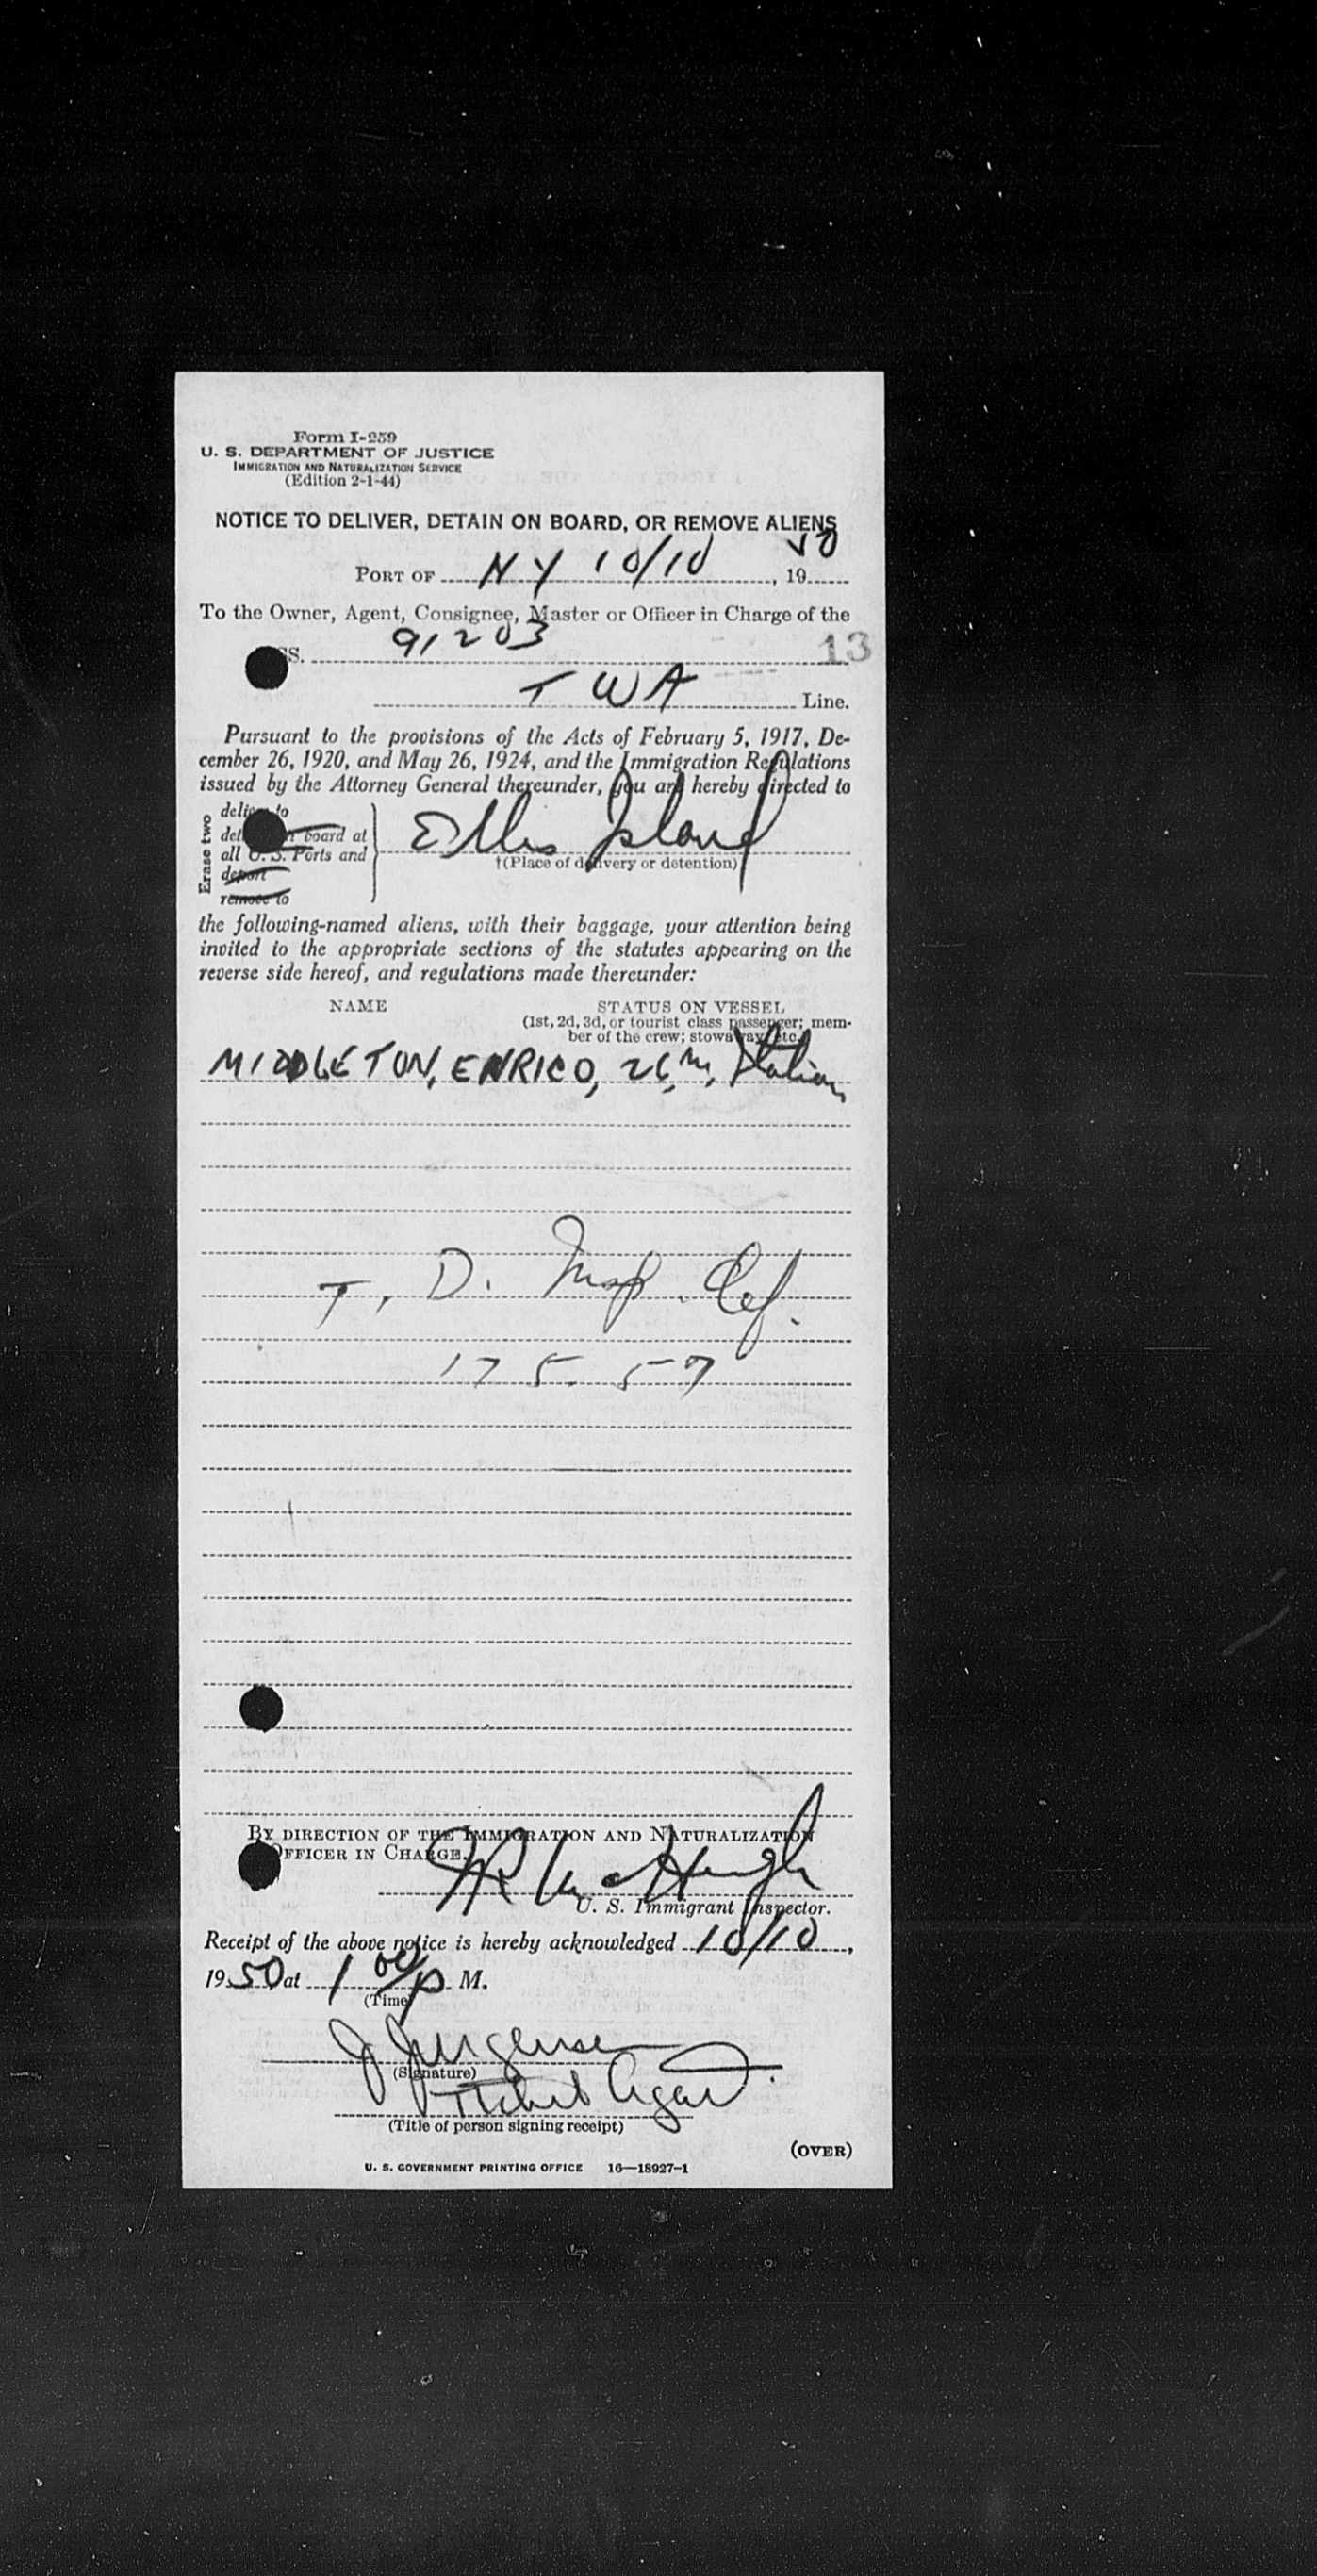 Form I-259
U. S. DEPARTMENT OF JUSTICE
IMMIGRATION AND NATURALIZATION SERVICE
(Edition 2-1-44)
NOTICE TO DELIVER, DETAIN ON BOARD, OR REMOVE ALIENS
PORT OF NY 10/10, 19 50
To the Owner, Agent, Consignee, Master or Officer in Charge of the
SS. 91203 13
TWA Line.
Pursuant to the provisions of the Acts of February 5, 1917, De-
cember 26, 1920, and May 26, 1924, and the Immigration Regulations
issued by the Attorney General thereunder, you are hereby directed to
Erase two
deliver to
board at
all U. S. Ports and
deport
remove to
Ellis Island
†(Place of delivery or detention)
the following-named aliens, with their baggage, your attention being
invited to the appropriate sections of the statutes appearing on the
reverse side hereof, and regulations made thereunder:
NAME STATUS ON VESSEL
(1st, 2d, 3d, or tourist class passenger; mem-
ber of the crew; stowaway, etc.)
MIDDLETON, ENRICO, 26, m, Italian
T. D. Insp.
175.57
BY DIRECTION OF THE IMMIGRATION AND NATURALIZATION
OFFICER IN CHARGE.
U. S. Immigrant Inspector.
Receipt of the above notice is hereby acknowledged 10/10,
1950 at 1 00/P M.
(Time)
J Jurgensen
(Signature)
Ticket Agent.
(Title of person signing receipt)
(OVER)
U. S. GOVERNMENT PRINTING OFFICE 16—18927-1